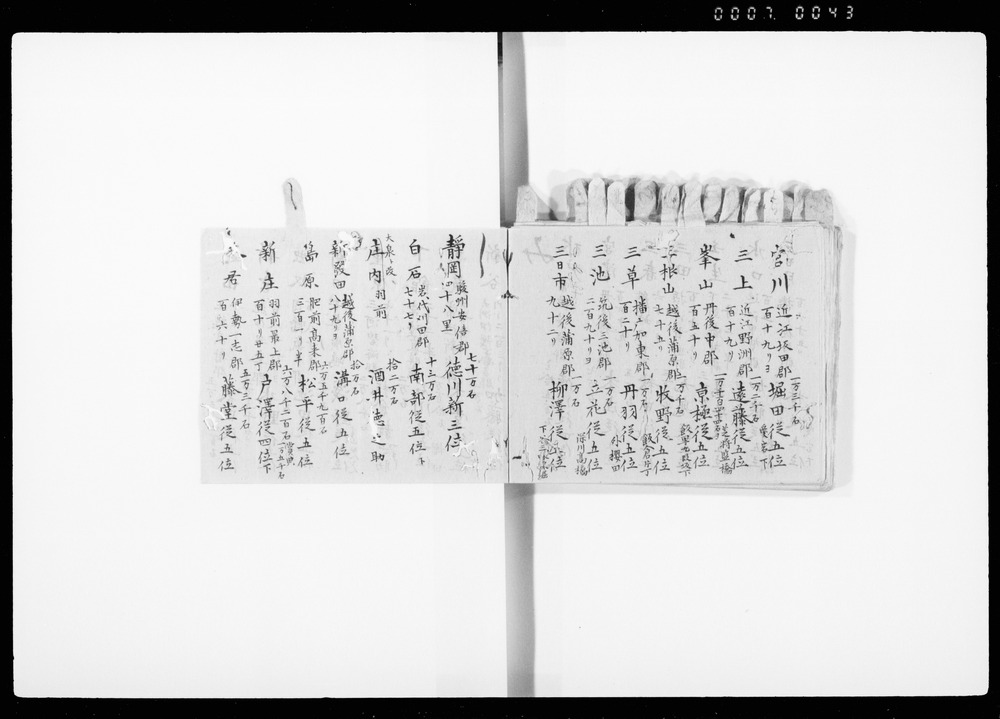 0007 0043
宮川 近江坂田郡 一万三千石 堀田従五位下
百十九リヨ
三上 近江野洲郡 一万二千石 遠藤従五位
百十九リ
峯山 丹後中郡 京極従五位
百五十リ
三根山 越後蒲原郡 牧野従五位
七十五リ
三草 播广加東郡 一万石 丹羽従五位
百三十リ 外櫻田
三池 筑後三池郡 一万石 立花従五位
二百九十リヨ 深川高橋
三日市 越後蒲原郡 一万石 柳澤従五位
九十二リ
静岡 駿州安倍郡 七十万石 徳川新三位
四十八里
白石 岩代刈田郡 十三万石 南部従五位下
七十七リ
大泉ト改
庄内 羽前 拾二万石 酒井徳之助
新發田 越後蒲原郡 拾万石 溝口従五位
八十九リヨ
島原 肥前高来郡 六万五千九百石 松平従五位
三百一リ半
新庄 羽前最上郡 六万八千二百石 戸澤従四位下
百十リ廿五丁
久居 伊勢一志郡 五万三千石 藤堂従五位
百六十リ